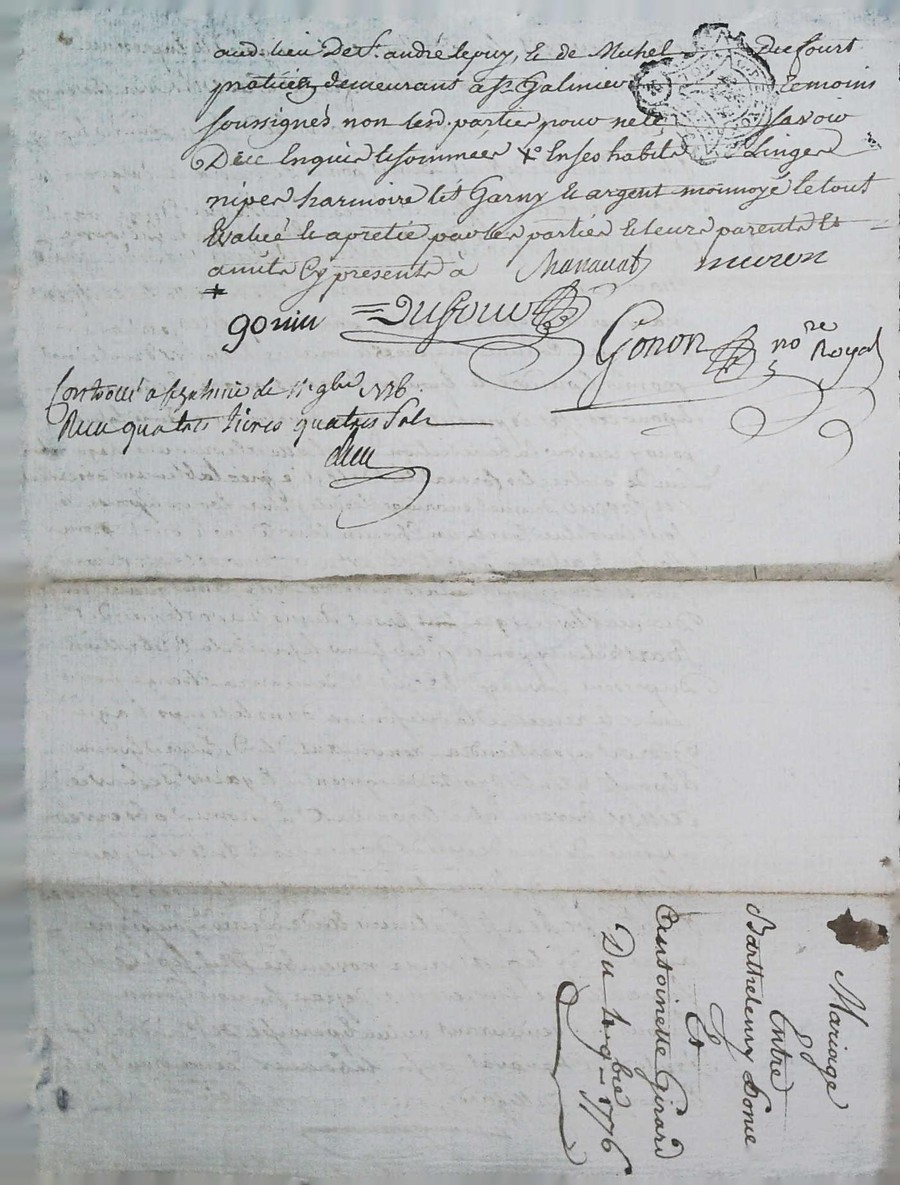 aud. lieu De St. andré lepuy, & de Michel Dufourt
praticien demeurant a St. Galmier temoins
soussignés non lesd. parties pour ne le savoir
De ce Enquis & sommees + en ses habits Linges
nipes harmoire lit Garny & argent monnoyé le tout
Evalué & apretié par les parties & leurs parents Et
amits Cy presents à Chanavat muron
+
gonin Dufour Gonon nore Royal
Controllé a St galmier le 11e 9bre 1776
Reçu quatres livres quatres sols
Mariage
Entre
Barthelemy
Et
Antoinette Girard
Du 9bre 1776